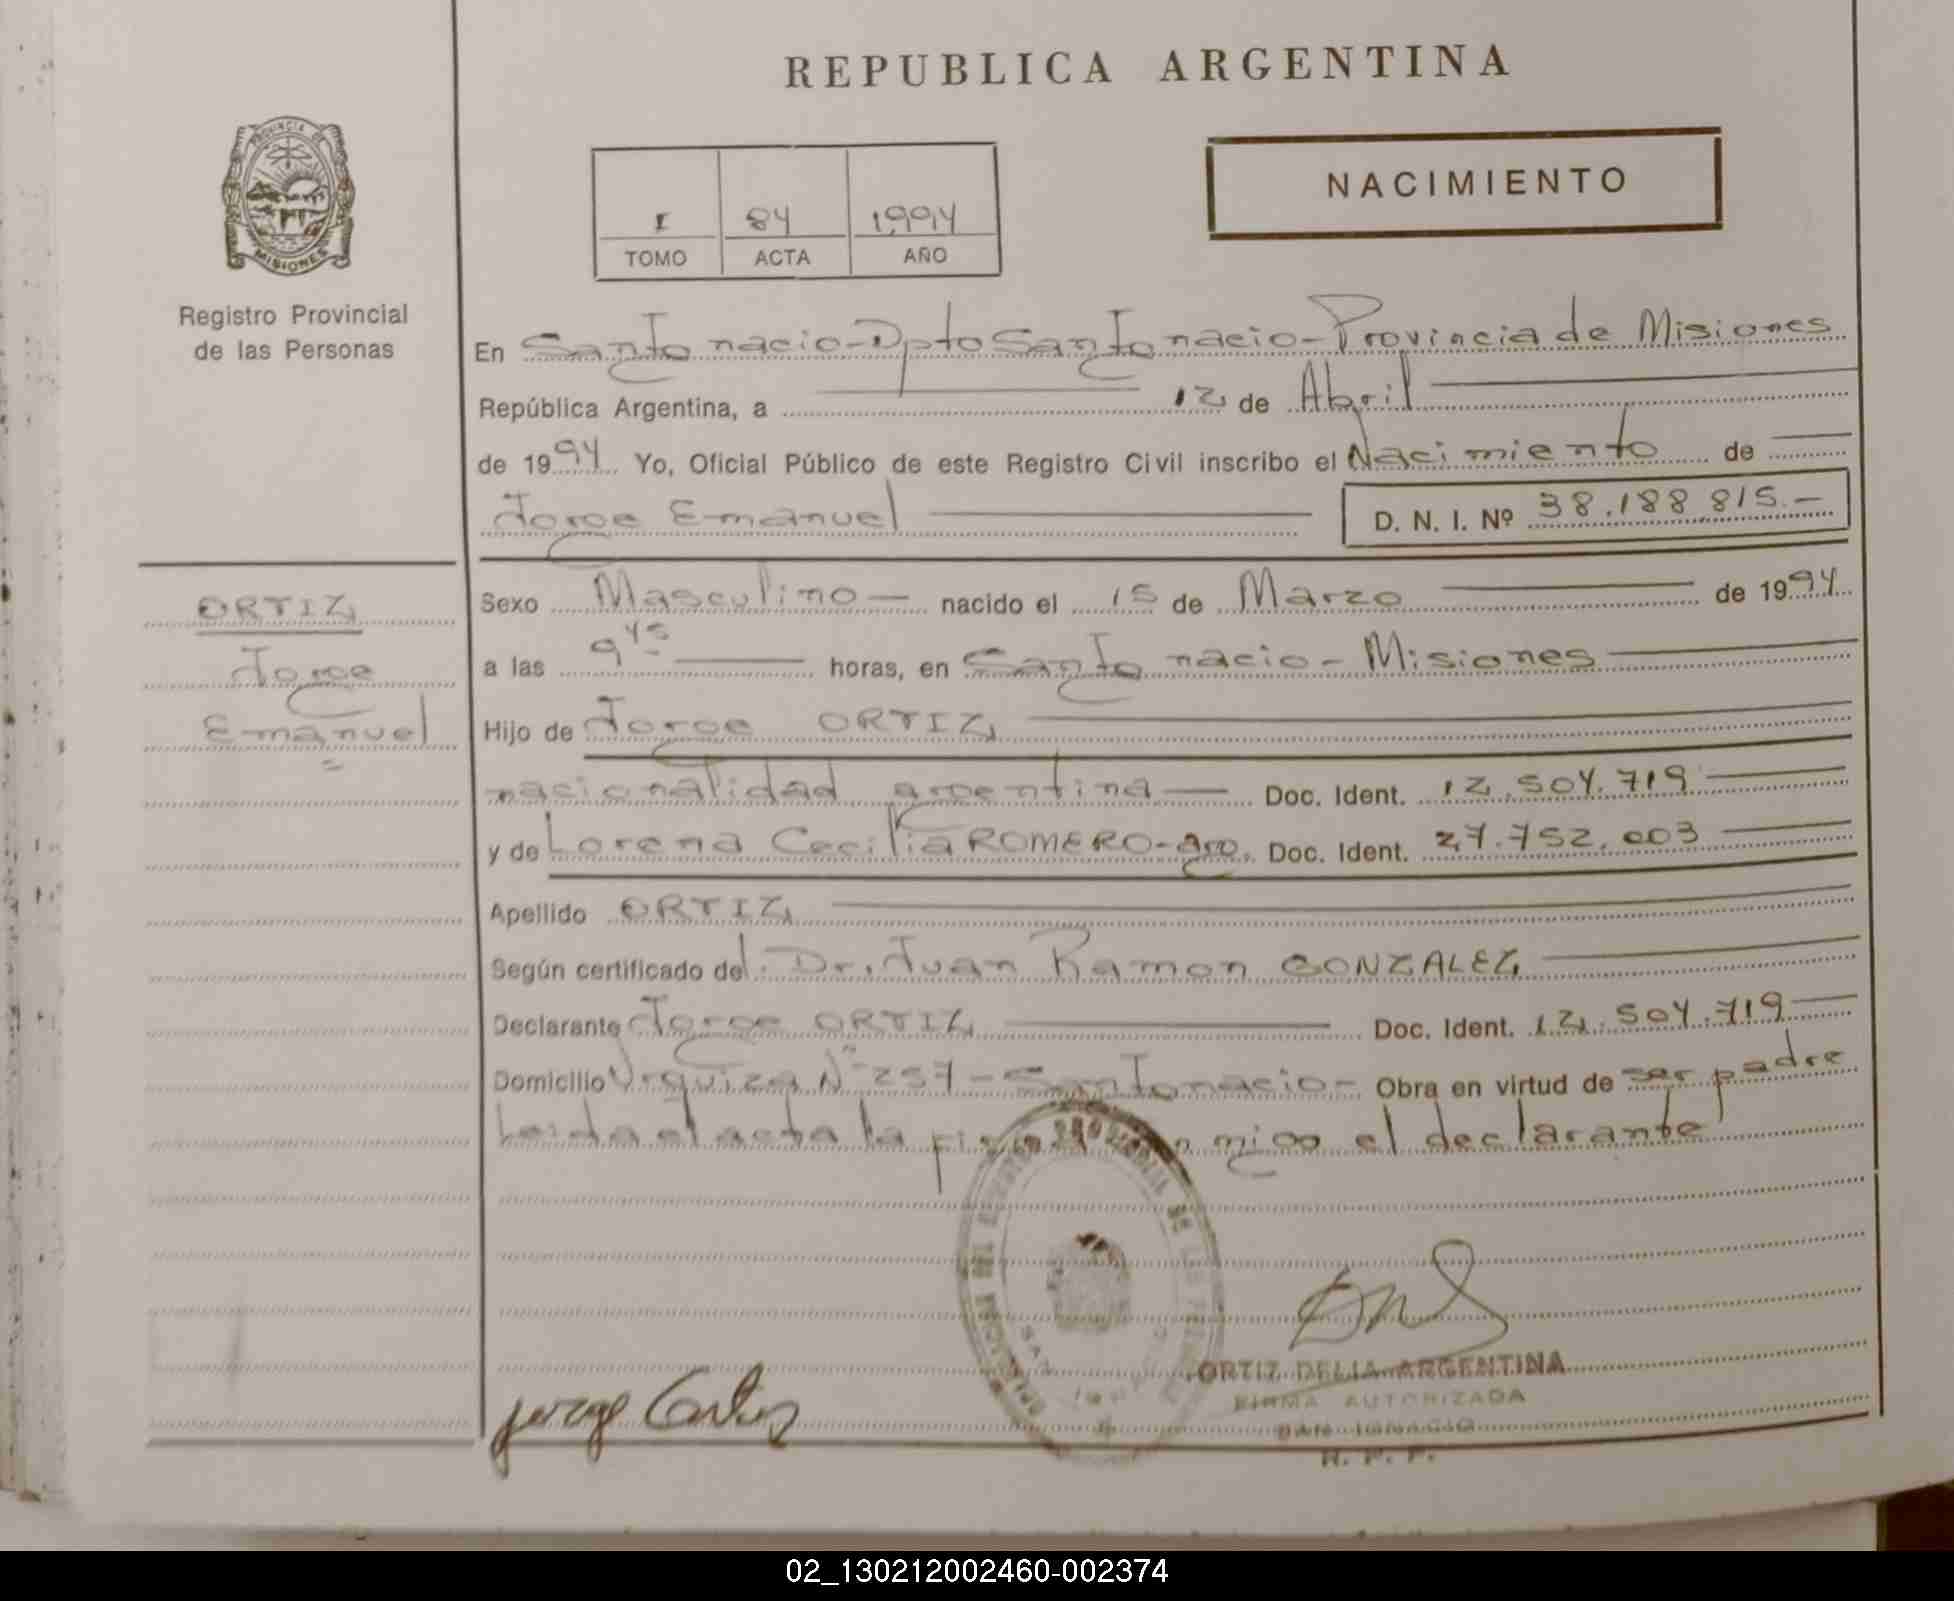 REPUBLICA ARGENTINA
PROVINCIA DE
MISIONES
Registro Provincial
de las Personas
I 84 1994
TOMO ACTA AÑO
NACIMIENTO
En San Ignacio - Dpto San Ignacio - Provincia de Misiones
República Argentina, a 12 de Abril
de 1994 Yo, Oficial Público de este Registro Civil inscribo el Nacimiento de
Jorge Emanuel D. N. I. Nº 38.188.815.-
ORTIZ
Jorge
Emanuel
Sexo Masculino - nacido el 15 de Marzo de 1994
a las 9 45 horas, en San Ignacio - Misiones
Hijo de Jorge ORTIZ
nacionalidad argentina - Doc. Ident. 12.504.719
y de Lorena Cecilia ROMERO - arg. Doc. Ident. 27.752.003
Apellido ORTIZ
Según certificado del Dr. Juan Ramon GONZALEZ
Declarante Jorge ORTIZ Doc. Ident. 12.504.719
Domicilio Urquiza Nº 257 - San Ignacio - Obra en virtud de ser padre
Leida el acta la firma conmigo el declarante
ORTIZ DELIA ARGENTINA
FIRMA AUTORIZADA
SAN IGNACIO
R. P. P.
02_130212002460-002374